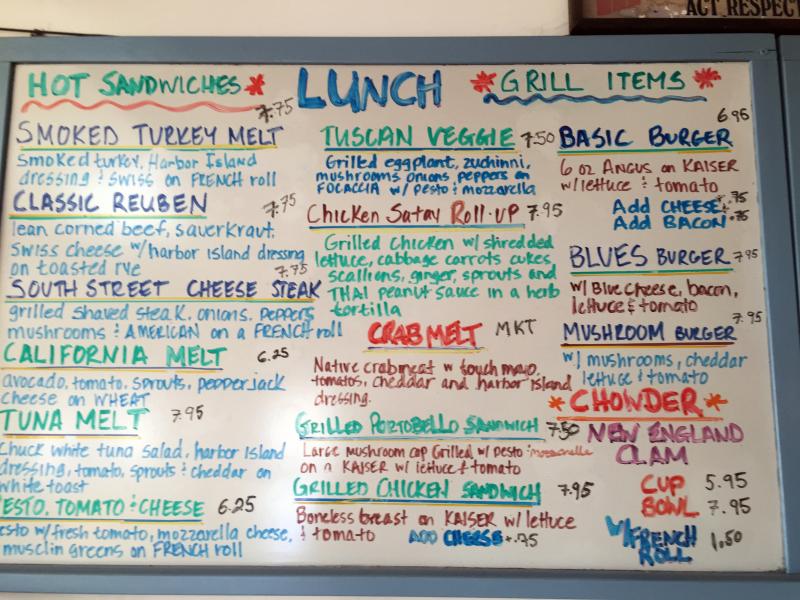 ACT RESPECT
HOT SANDWICHES
LUNCH
GRILL ITEMS
7.75
SMOKED TURKEY MELT
Smoked turkey, Harbor Island
dressing & SWISS on FRENCH roll
CLASSIC REUBEN 7.75
lean corned beef, sauerkraut,
Swiss cheese w/harbor island dressing
on toasted rye
7.75
SOUTH STREET CHEESE STEAK
grilled shaved steak, onions, peppers
mushrooms & AMERICAN on a FRENCH roll
CALIFORNIA MELT 6.25
avocado, tomato, sprouts, pepperjack
cheese on WHEAT
TUNA MELT 7.95
Chuck white tuna salad, harbor island
dressing, tomato, sprouts & cheddar on
white toast
ESTO, TOMATO & CHEESE 6.25
esto w/fresh tomato, mozzarella cheese,
musclin greens on FRENCH roll
TUSCAN VEGGIE 7.50
Grilled eggplant, zuchinni,
mushrooms onions, peppers on
FOCACCIA w/ pesto & mozzarella
Chicken Satay Roll-up 7.95
Grilled chicken w/ shredded
lettuce, cabbage carrots cukes
scallions, ginger, sprouts and
THAI peanut sauce in a herb
tortilla
CRAB MELT MKT
Native crabmeat w touch mayo,
tomatos, cheddar and harbor island
dressing.
GRILLED PORTOBELLO SANDWICH 7.50
Large mushroom cap Grilled w/ pesto & mozzarella
on a KAISER w/ lettuce & tomato
GRILLED CHICKEN SANDWICH 7.95
Boneless breast on KAISER w/ lettuce
& tomato ADD CHEESE +.75
6.95
BASIC BURGER
6 oz ANGUS on KAISER
w/lettuce & tomato
Add CHEESE +.75
Add BACON +.75
BLUES BURGER 7.95
w/ Blue cheese, bacon,
lettuce & tomato
7.95
MUSHROOM BURGER
w/ mushrooms, cheddar
lettuce & tomato
CHOWDER
NEW ENGLAND
CLAM
CUP 5.95
BOWL 7.95
W/ FRENCH
ROLL 1.50